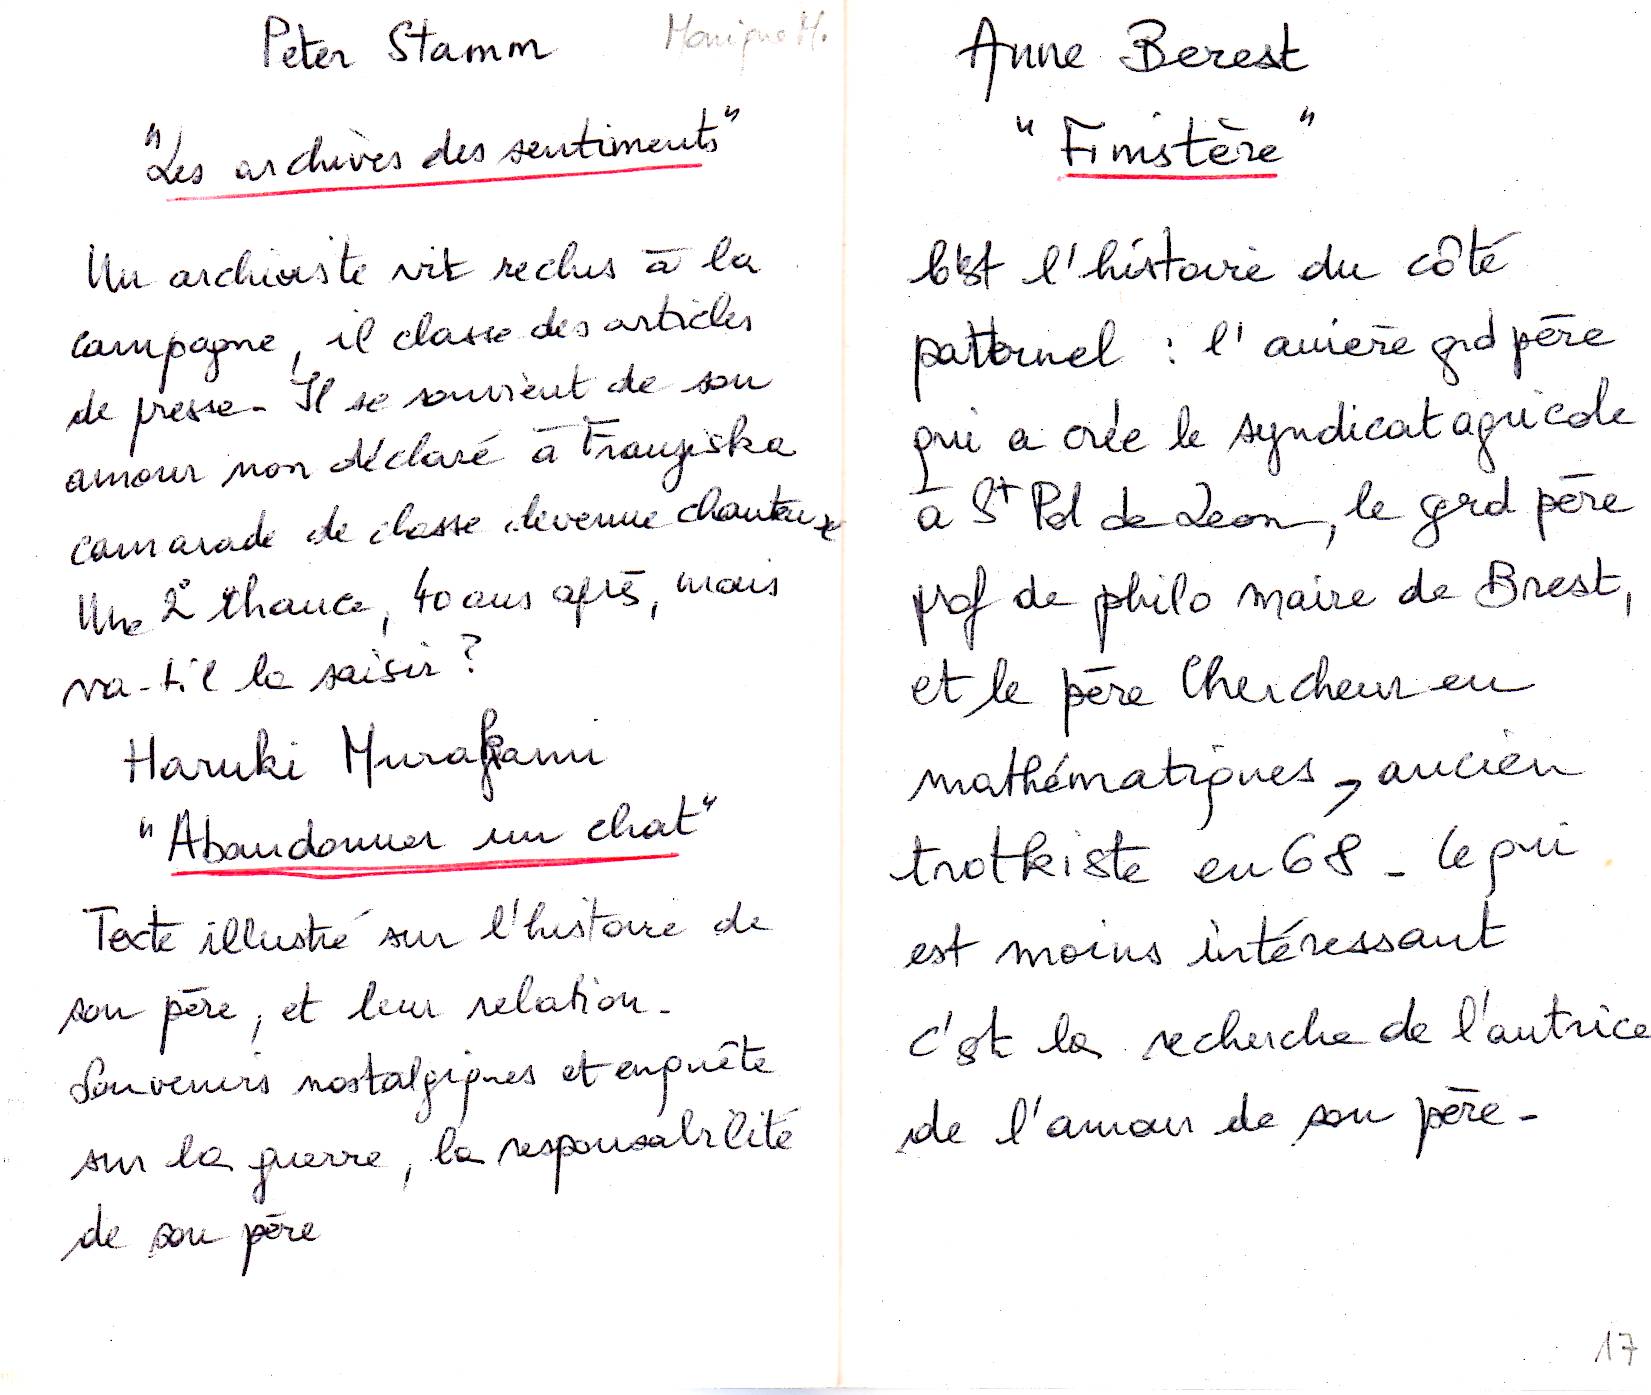 Peter Stamm
Monique M.
"Les archives des sentiments"
Un archiviste vit reclus à la
campagne, il classe des articles
de presse - Il se souvient de son
amour non déclaré à Franziska
camarade de classe devenue chanteuse
Une 2e chance, 40 ans après, mais
va-t-il la saisir ?
Haruki Murakami
"Abandonner un chat"
Texte illustré sur l'histoire de
son père, et leur relation -
Souvenirs nostalgiques et enquête
sur la guerre, la responsabilité
de son père
Anne Berest
"Finistère"
C'est l'histoire du côté
paternel : l'arrière grd père
qui a crée le syndicat agricole
à St Pol de Leon, le grd père
prof de philo maire de Brest,
et le père Chercheur en
mathématiques, ancien
trotkiste en 68 - Ce qui
est moins intéressant
c'est la recherche de l'autrice
de l'amour de son père -
17